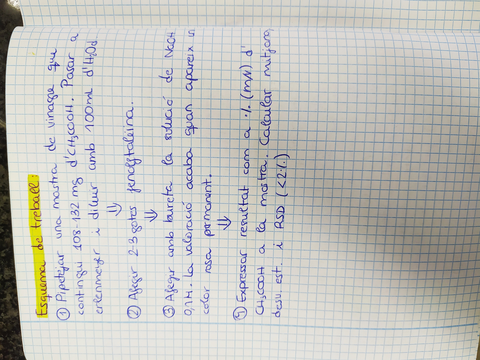 Esquema de treball:
① Pipetejar una mostra de vinagre que
contingui 108-132 mg d'CH₃COOH. Passar a
erlenmeyer i diluir amb 100mL d'H₂Od
⇓
② Afegir 2-3 gotes fenolftaleïna.
⇓
③ Afegir amb bureta la solució de NaOH
0,1M. La valoració acaba quan apareix un
color rosa permanent.
⇓
④ Expressar resultat com a % (m/V) d'
CH₃COOH a la mostra. Calcular mitjana,
desv. est. i RSD (<2%)